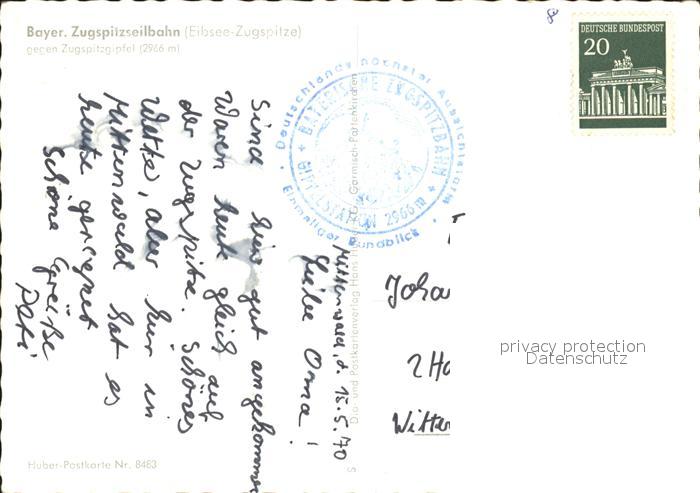 Bayer. Zugspitzseilbahn (Eibsee-Zugspitze)
gegen Zugspitzgipfel (2966 m)
Mittenwald, d. 18.5.70
Liebe Oma!
Sind hier gut angekommen
Waren heute gleich auf
der Zugspitze. Schönes
Wetter, aber hier in
Mittenwald hat es
heute geregnet
Schöne Grüße
Deutschlands höchster Aussichtsturm
BAYERISCHE ZUGSPITZBAHN
GIPFELSTATION 2966 m
Einmaliger Rundblick
Dia- und Postkartenverlag Hans Huber
Garmisch-Partenkirchen
DEUTSCHE BUNDESPOST
20
Joha
2 Ha
Witten
privacy protection
Datenschutz
Huber-Postkarte Nr. 8483